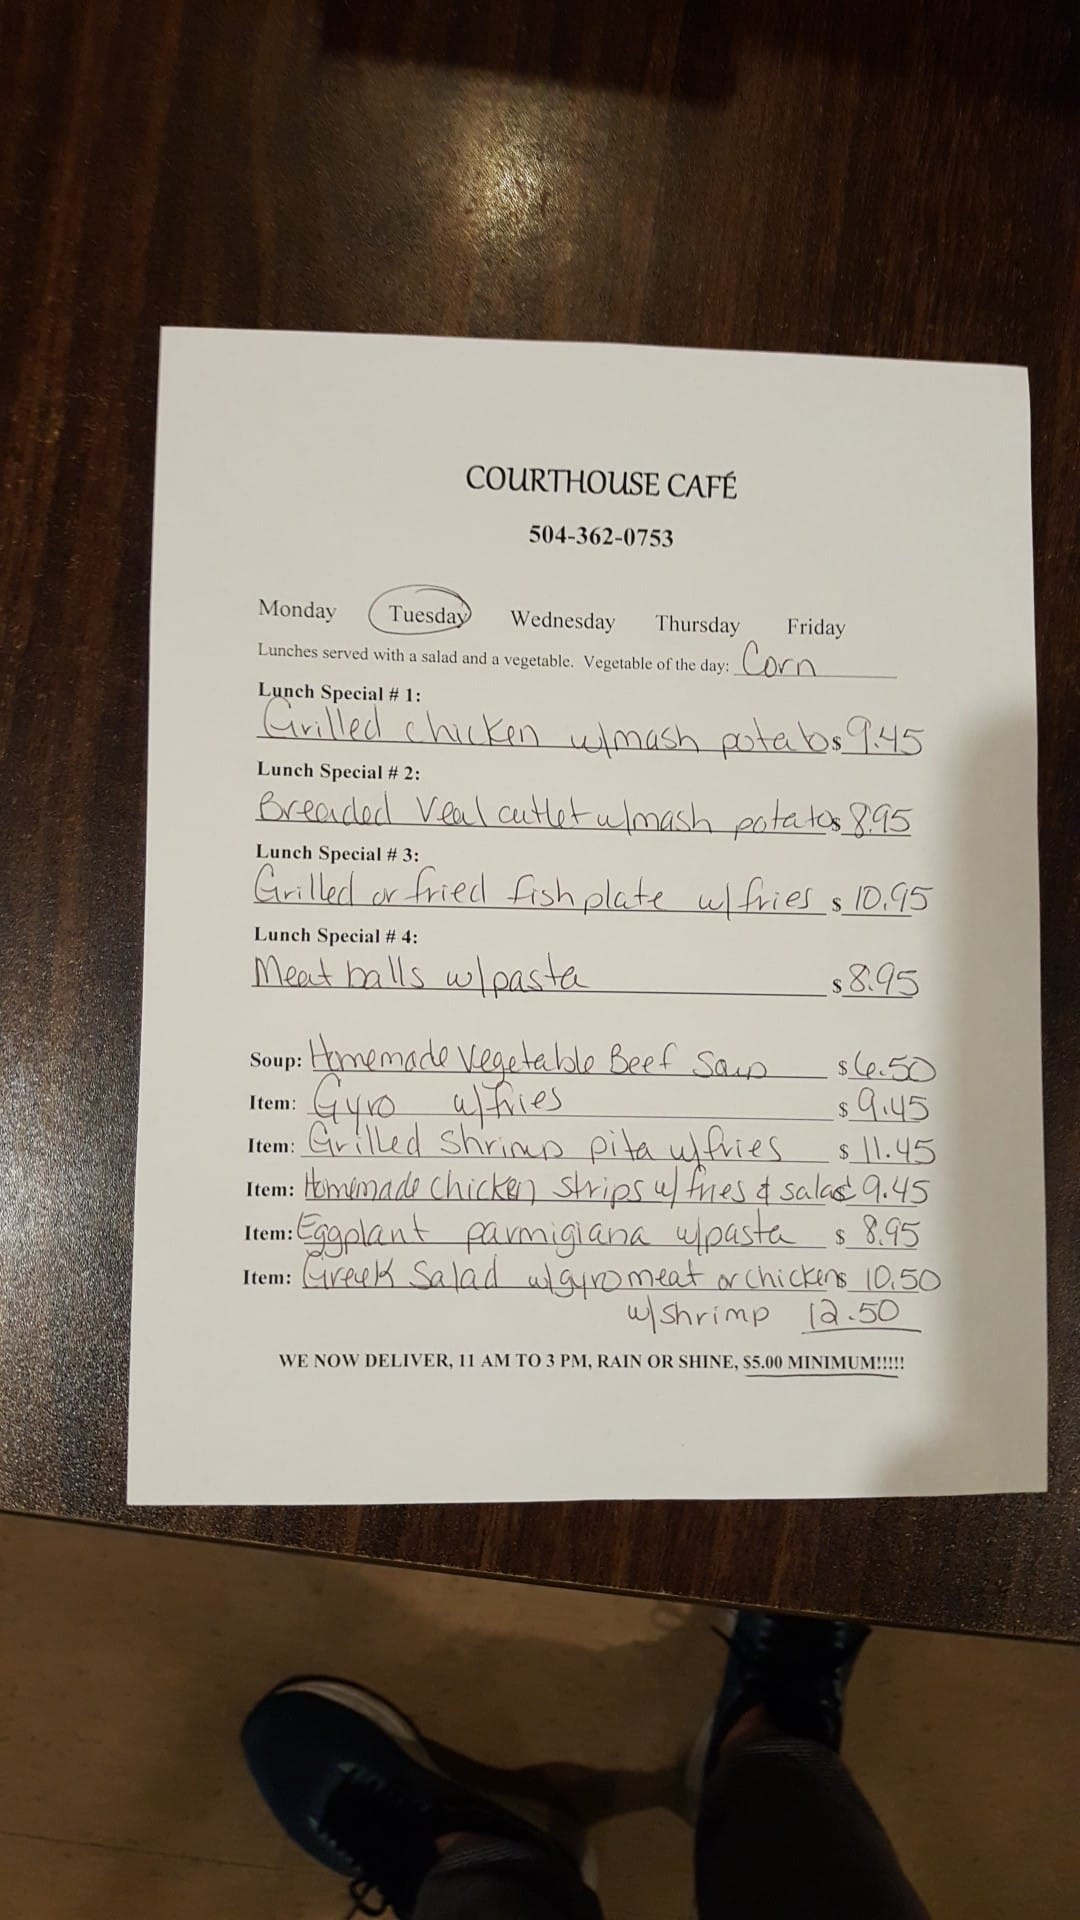 COURTHOUSE CAFÉ
504-362-0753
Monday Tuesday Wednesday Thursday Friday
Lunches served with a salad and a vegetable. Vegetable of the day: Corn
Lunch Special # 1:
Grilled chicken w/mash potatos $ 9.45
Lunch Special # 2:
Breaded Veal cutlet w/mash potatos $ 8.95
Lunch Special # 3:
Grilled or fried fish plate w/ fries $ 10.95
Lunch Special # 4:
Meat balls w/pasta $ 8.95
Soup: Homemade Vegetable Beef Soup $ 6.50
Item: Gyro w/fries $ 9.45
Item: Grilled Shrimp pita w/fries $ 11.45
Item: Homemade Chicken strips w/ fries & salad $ 9.45
Item: Eggplant parmigiana w/pasta $ 8.95
Item: Greek Salad w/gyro meat or chicken $ 10.50
w/shrimp 12.50
WE NOW DELIVER, 11 AM TO 3 PM, RAIN OR SHINE, $5.00 MINIMUM!!!!!